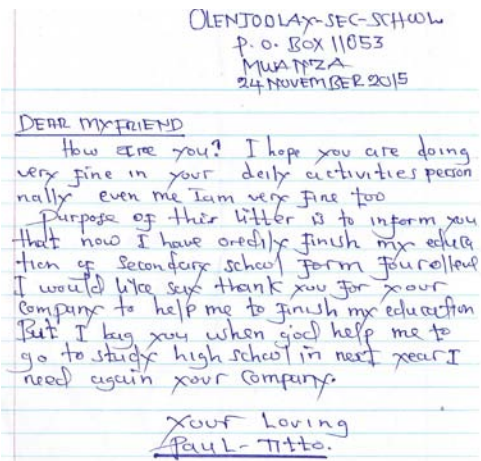 OLENJOOLAY-SEC-SCHOOL
P. O. BOX 11053
MWANZA
24 NOVEMBER 2015
DEAR MY FRIEND
How are you? I hope you are doing
very fine in your deily activities person
nally even me Iam very fine too
Purpose of this litter is to inform you
that now I have oredily finish my educa
tion of secondary school form four ollevel
I would like say thank you for your
company to help me to finish my education
But I bag you when god help me to
go to study high school in next year I
need again your company.
Your Loving
Paul-Titto.